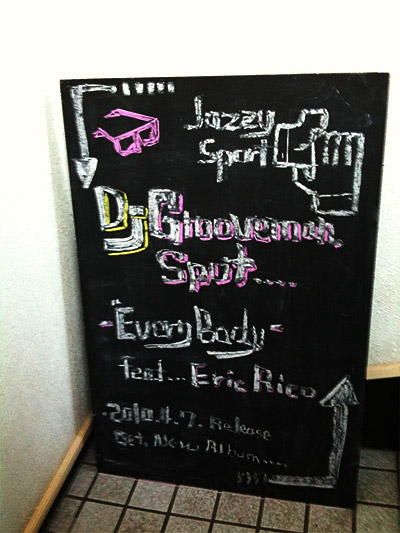 Jazzy
Sport
Dj Grooveman
Spot.....
-"Every Body"-
feat... Eric Rico
.2010.4.7. Release
Get. New Album....